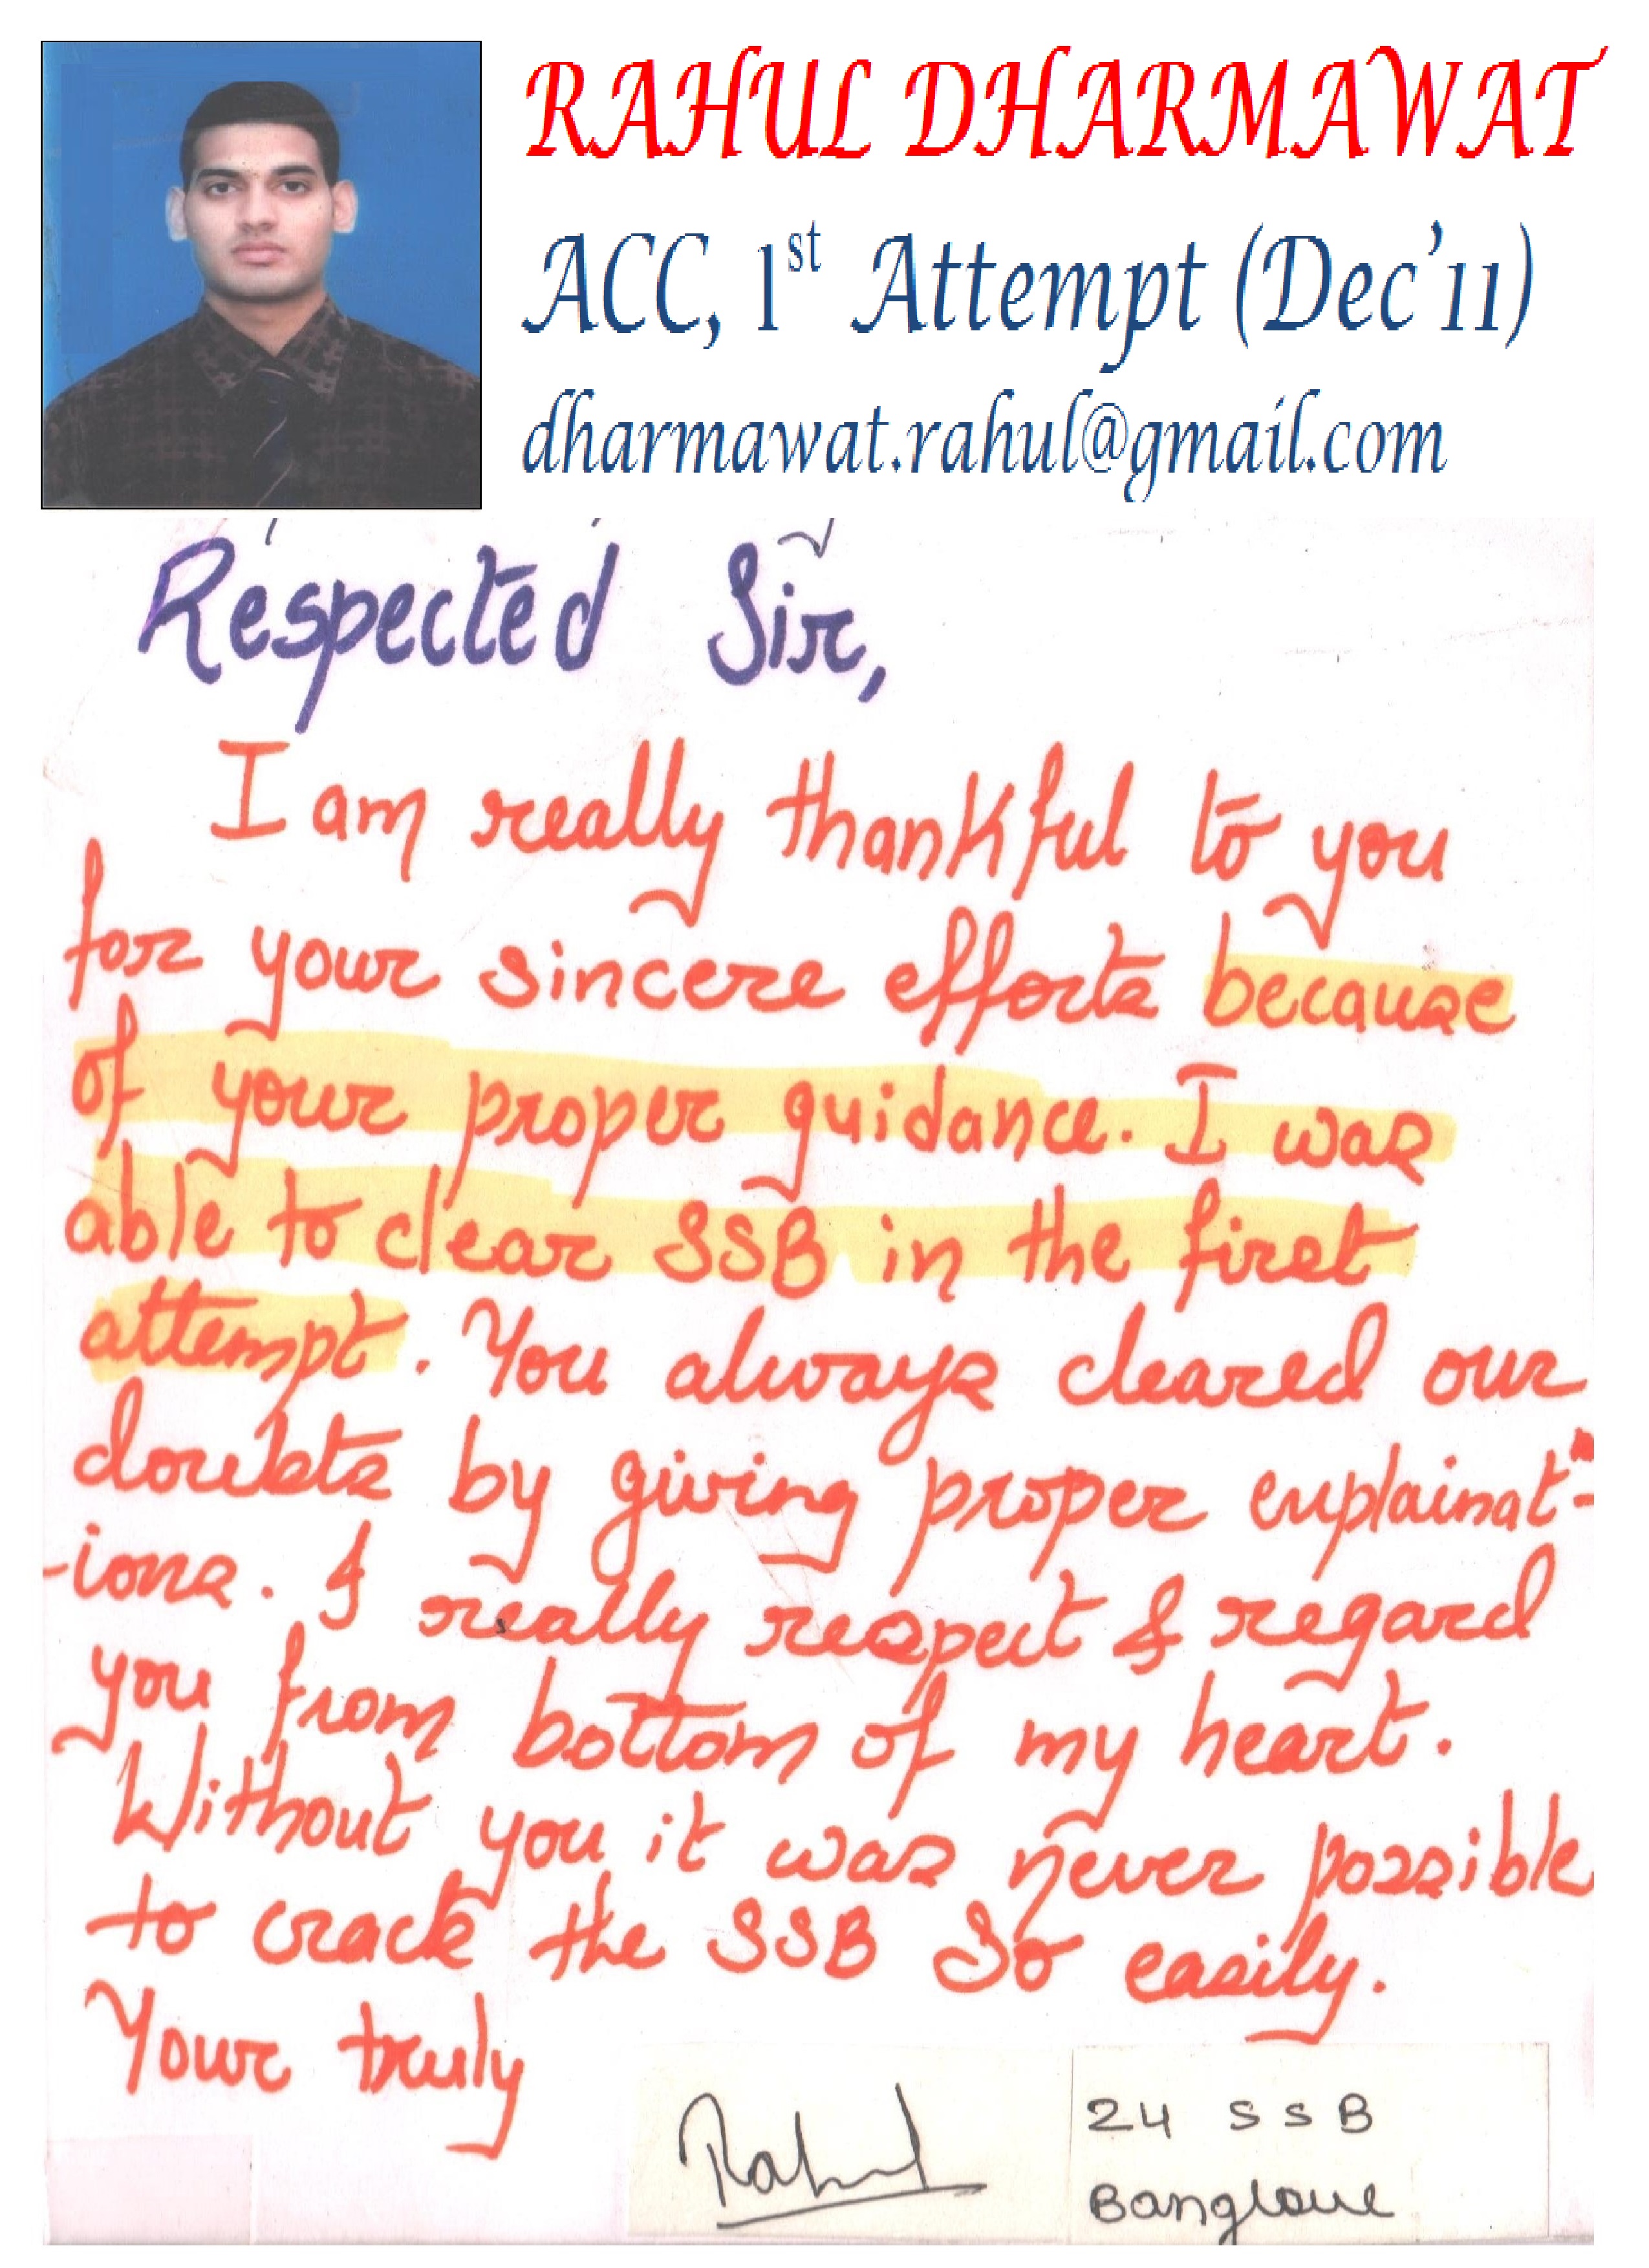 RAHUL DHARMAWAT
ACC, 1st Attempt (Dec'11)
dharmawat.rahul@gmail.com
Respected Sir,
I am really thankful to you
for your sincere efforts because
of your proper guidance. I was
able to clear SSB in the first
attempt. You always cleared our
doubts by giving proper explainat-
-ions. I really respect & regard
you from bottom of my heart.
Without you it was never possible
to crack the SSB So easily.
Your truly
Rahul
24 SSB
Banglore